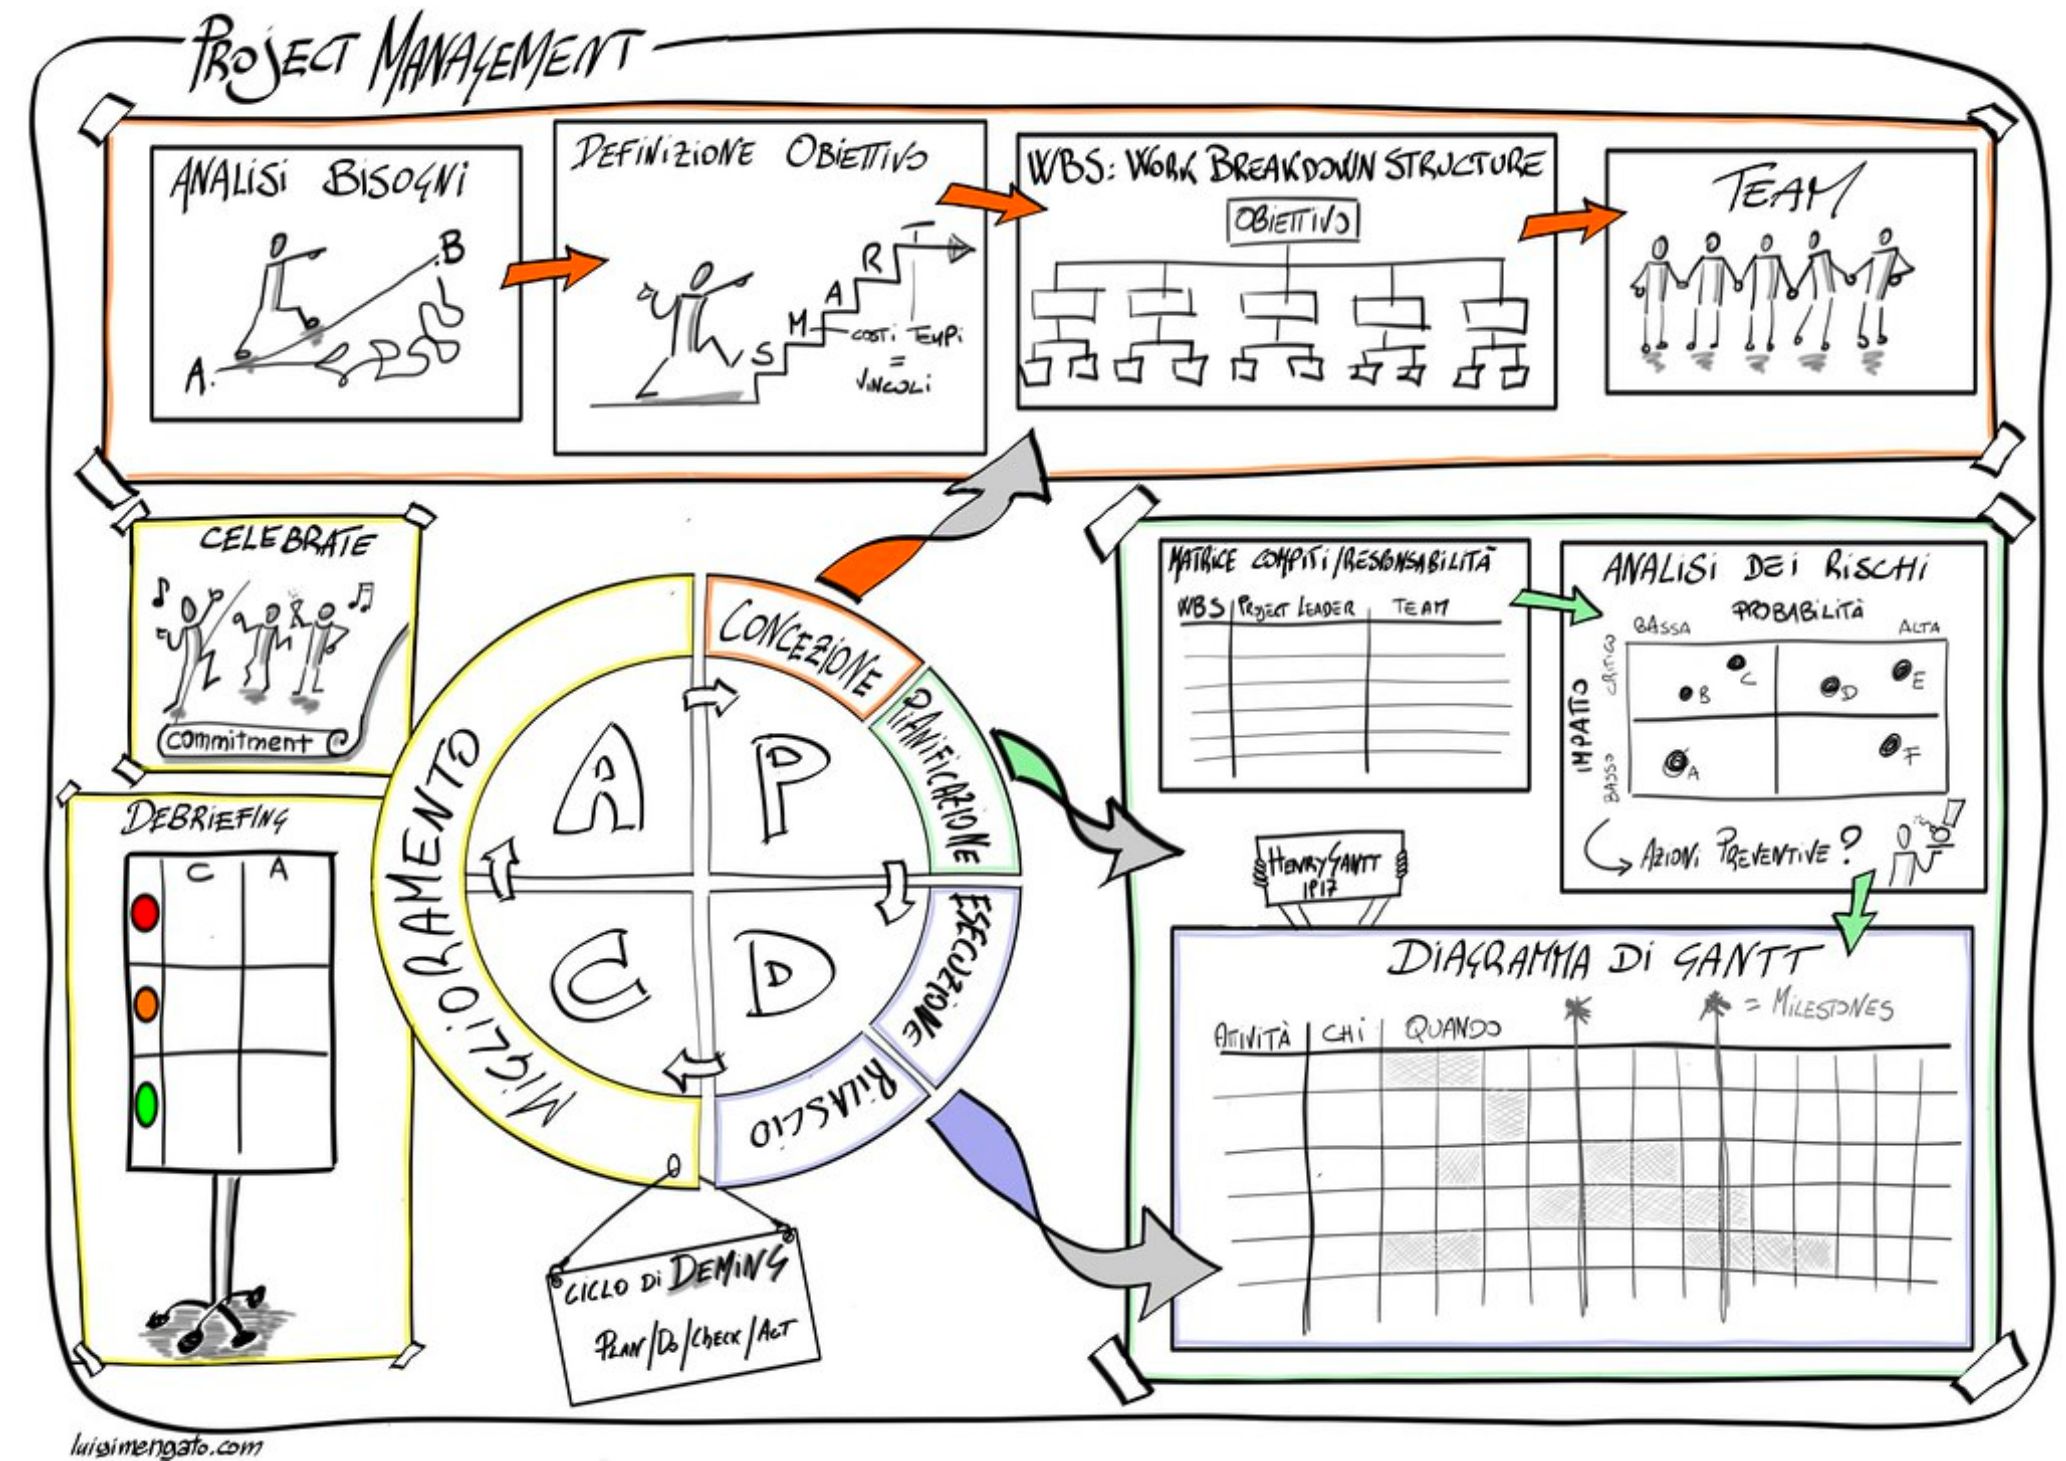 PROJECT MANAGEMENT
ANALISI BISOGNI
B
A.
DEFINIZIONE OBIETTIVO
S
M
A
R
T
COSTI TEMPI
=
VINCOLI
WBS: WORK BREAKDOWN STRUCTURE
OBIETTIVO
TEAM
CELEBRATE
commitment
DEBRIEFING
C A
CONCEZIONE
PIANIFICAZIONE
ESECUZIONE
RILASCIO
MIGLIORAMENTO
A P
C D
CICLO DI DEMING
PLAN/DO/CHECK/ACT
MATRICE COMPITI/RESPONSABILITÀ
WBS PROJECT LEADER TEAM
ANALISI DEI RISCHI
PROBABILITÀ
BASSA ALTA
IMPATTO
CRITICO
BASSO
B
C
D
E
A
F
AZIONI PREVENTIVE?
HENRY GANTT
1917
DIAGRAMMA DI GANTT
= MILESTONES
ATTIVITÀ CHI QUANDO
luigimengato.com